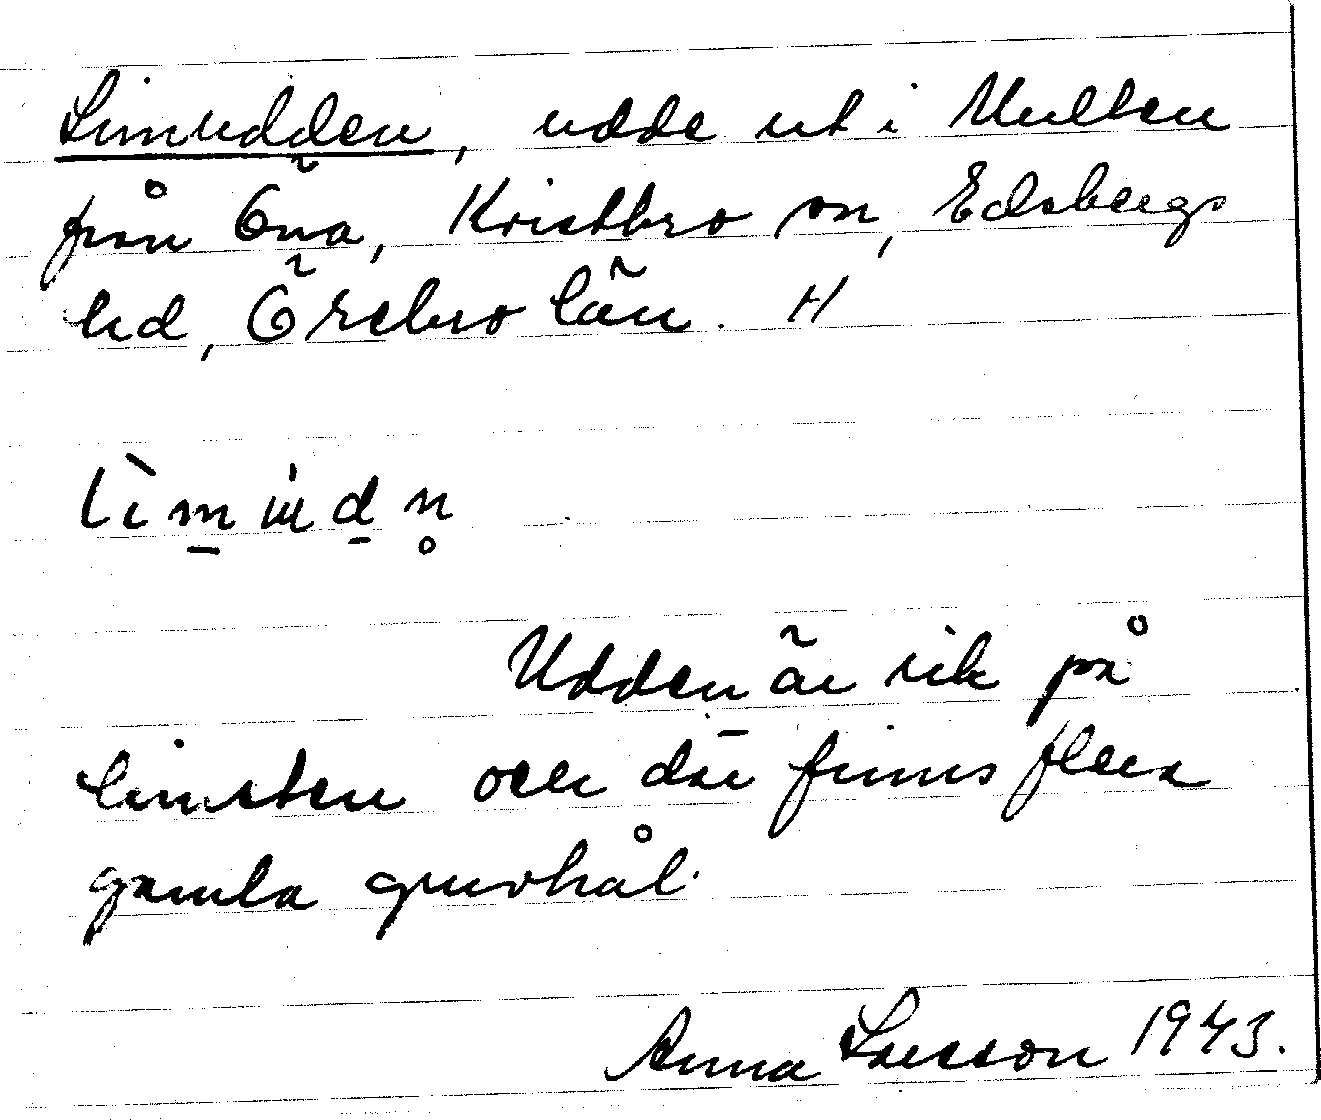 Limudden, udde ut i Multen
från Öna, Kvistbro sn, Edsbergs
hd, Örebro län. H
Udden är rik på
limsten och där finns flera
gamla gruvhål.
Anna Larsson 1943.